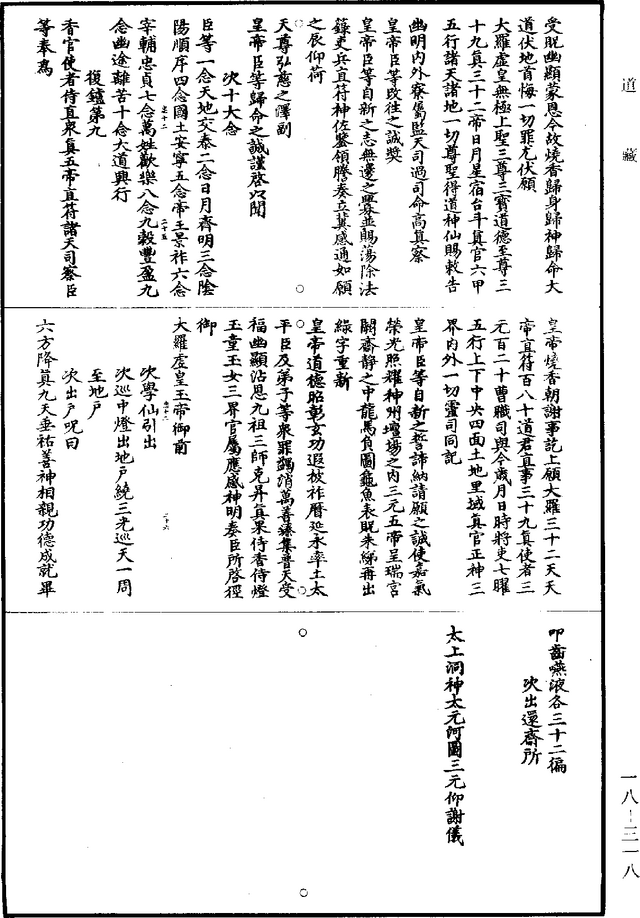 道藏
受貺幽顯蒙恩今故燒香歸身歸神歸命大
道伏地首悔一切罪尤伏願
大羅虛皇無極上聖三尊三寶道德至尊三
十九真三十二帝日月星宿台斗真官六甲
五行諸天諸地一切尊聖得道神仙賜敕告
幽明內外寮屬監天司過司命高真察
皇帝臣等改往之誠獎
皇帝臣等自新之志無邊之釁並賜蕩除法
籙吏兵直符神佐鑒領騰奏立冀感通如願
之辰仰荷
天尊弘慈之澤副
皇帝臣等歸命之誠謹啓以聞
次十大念
臣等一念天地交泰二念日月齊明三念陰
陽順序四念國土安寧五念帝王景祚六念
宰輔忠貞七念萬姓歡樂八念九穀豐盈九
念幽途離苦十念大道興行
復鑪第九
香官使者侍直衆真五帝直符諸天司察臣
等奉為
皇帝燒香朝謝事訖上願大羅三十二天天
帝直符百八十道君直事三十九真使者三
元百二十曹職司與今歲月日時將吏七曜
五行上下中央四面土地里域真官正神三
界內外一切靈司同記
皇帝臣等自新之誓諦納請願之誠使嘉氣
榮光照耀神州壇場之內三元五帝呈瑞宮
闕齋靜之中龍馬負圖龜魚表貺朱綈再出
綠字重新
皇帝道德昭彰玄功遐被祚曆延永率土太
平臣及弟子等衆罪蠲消萬善臻集普天受
福幽顯沾恩九祖三師克昇真果侍香侍燈
玉童玉女三界官屬應感神明奏臣所啓徑
御
大羅虛皇玉帝御前
次學仙引出
次巡中燈出地戶繞三光巡天一周
至地戶
次出戶呪曰
六方降真九天垂祐善神相親功德成就畢
叩齒嚥液各三十二徧
次出還齋所
太上洞神太元河圖三元仰謝儀
一八-三一八